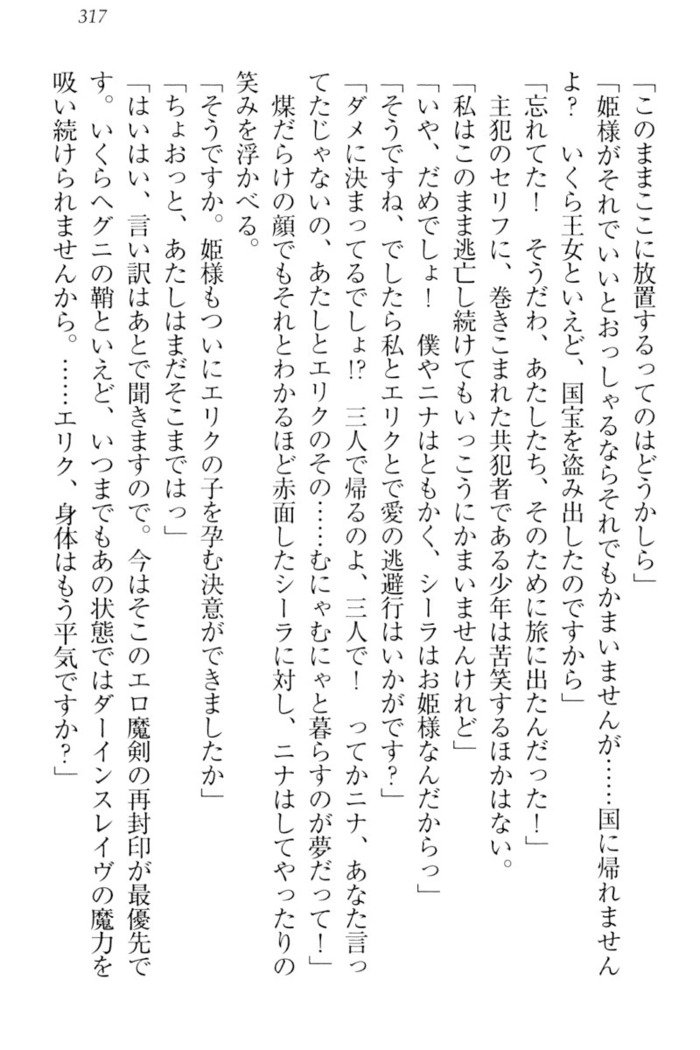 317
「このままここに放置するってのはどうかしら」
「姫様がそれでいいとおっしゃるならそれでもかまいませんが……国に帰れません
よ？　いくら王女といえど、国宝を盗み出したのですから」
「忘れてた！　そうだわ、あたしたち、そのために旅に出たんだった！」
　主犯のセリフに、巻きこまれた共犯者である少年は苦笑するほかはない。
「私はこのまま逃亡し続けてもいっこうにかまいませんけれど」
「いや、だめでしょ！　僕やニナはともかく、シーラはお姫様なんだからっ」
「そうですね、でしたら私とエリクとで愛の逃避行はいかがです？」
「ダメに決まってるでしょ!?　三人で帰るのよ、三人で！　ってかニナ、あなた言っ
てたじゃないの、あたしとエリクのその……むにゃむにゃと暮らすのが夢だって！」
　煤だらけの顔でもそれとわかるほど赤面したシーラに対し、ニナはしてやったりの
笑みを浮かべる。
「そうですか。姫様もついにエリクの子を孕む決意ができましたか」
「ちょおっと、あたしはまだそこまではっ」
「はいはい、言い訳はあとで聞きますので。今はそこのエロ魔剣の再封印が最優先で
す。いくらヘグニの鞘といえど、いつまでもあの状態ではダーインスレイヴの魔力を
吸い続けられませんから。……エリク、身体はもう平気ですか？」